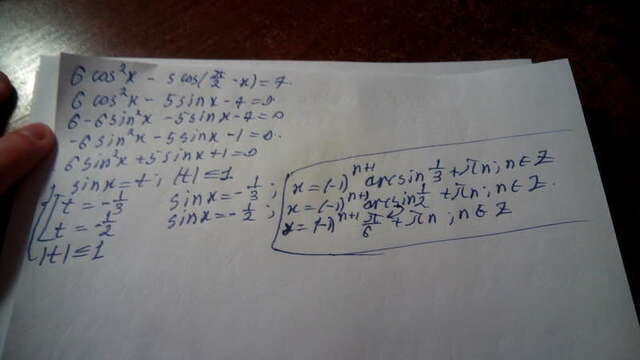 6 cos²x - 5 cos(π/2 - x) = 7.
6 cos²x - 5 sinx - 7 = 0
6 - 6 sin²x - 5 sinx - 7 = 0
-6 sin²x - 5 sinx - 1 = 0.
6 sin²x + 5 sinx + 1 = 0
sinx = t; |t| ≤ 1
t = -1/3 sinx = -1/3;
t = -1/2 sinx = -1/2;
|t| ≤ 1
x = (-1)ⁿ⁺¹ arcsin 1/3 + πn; n ∈ Z
x = (-1)ⁿ⁺¹ arcsin 1/2 + πn; n ∈ Z.
x = (-1)ⁿ⁺¹ π/6 + πn; n ∈ Z